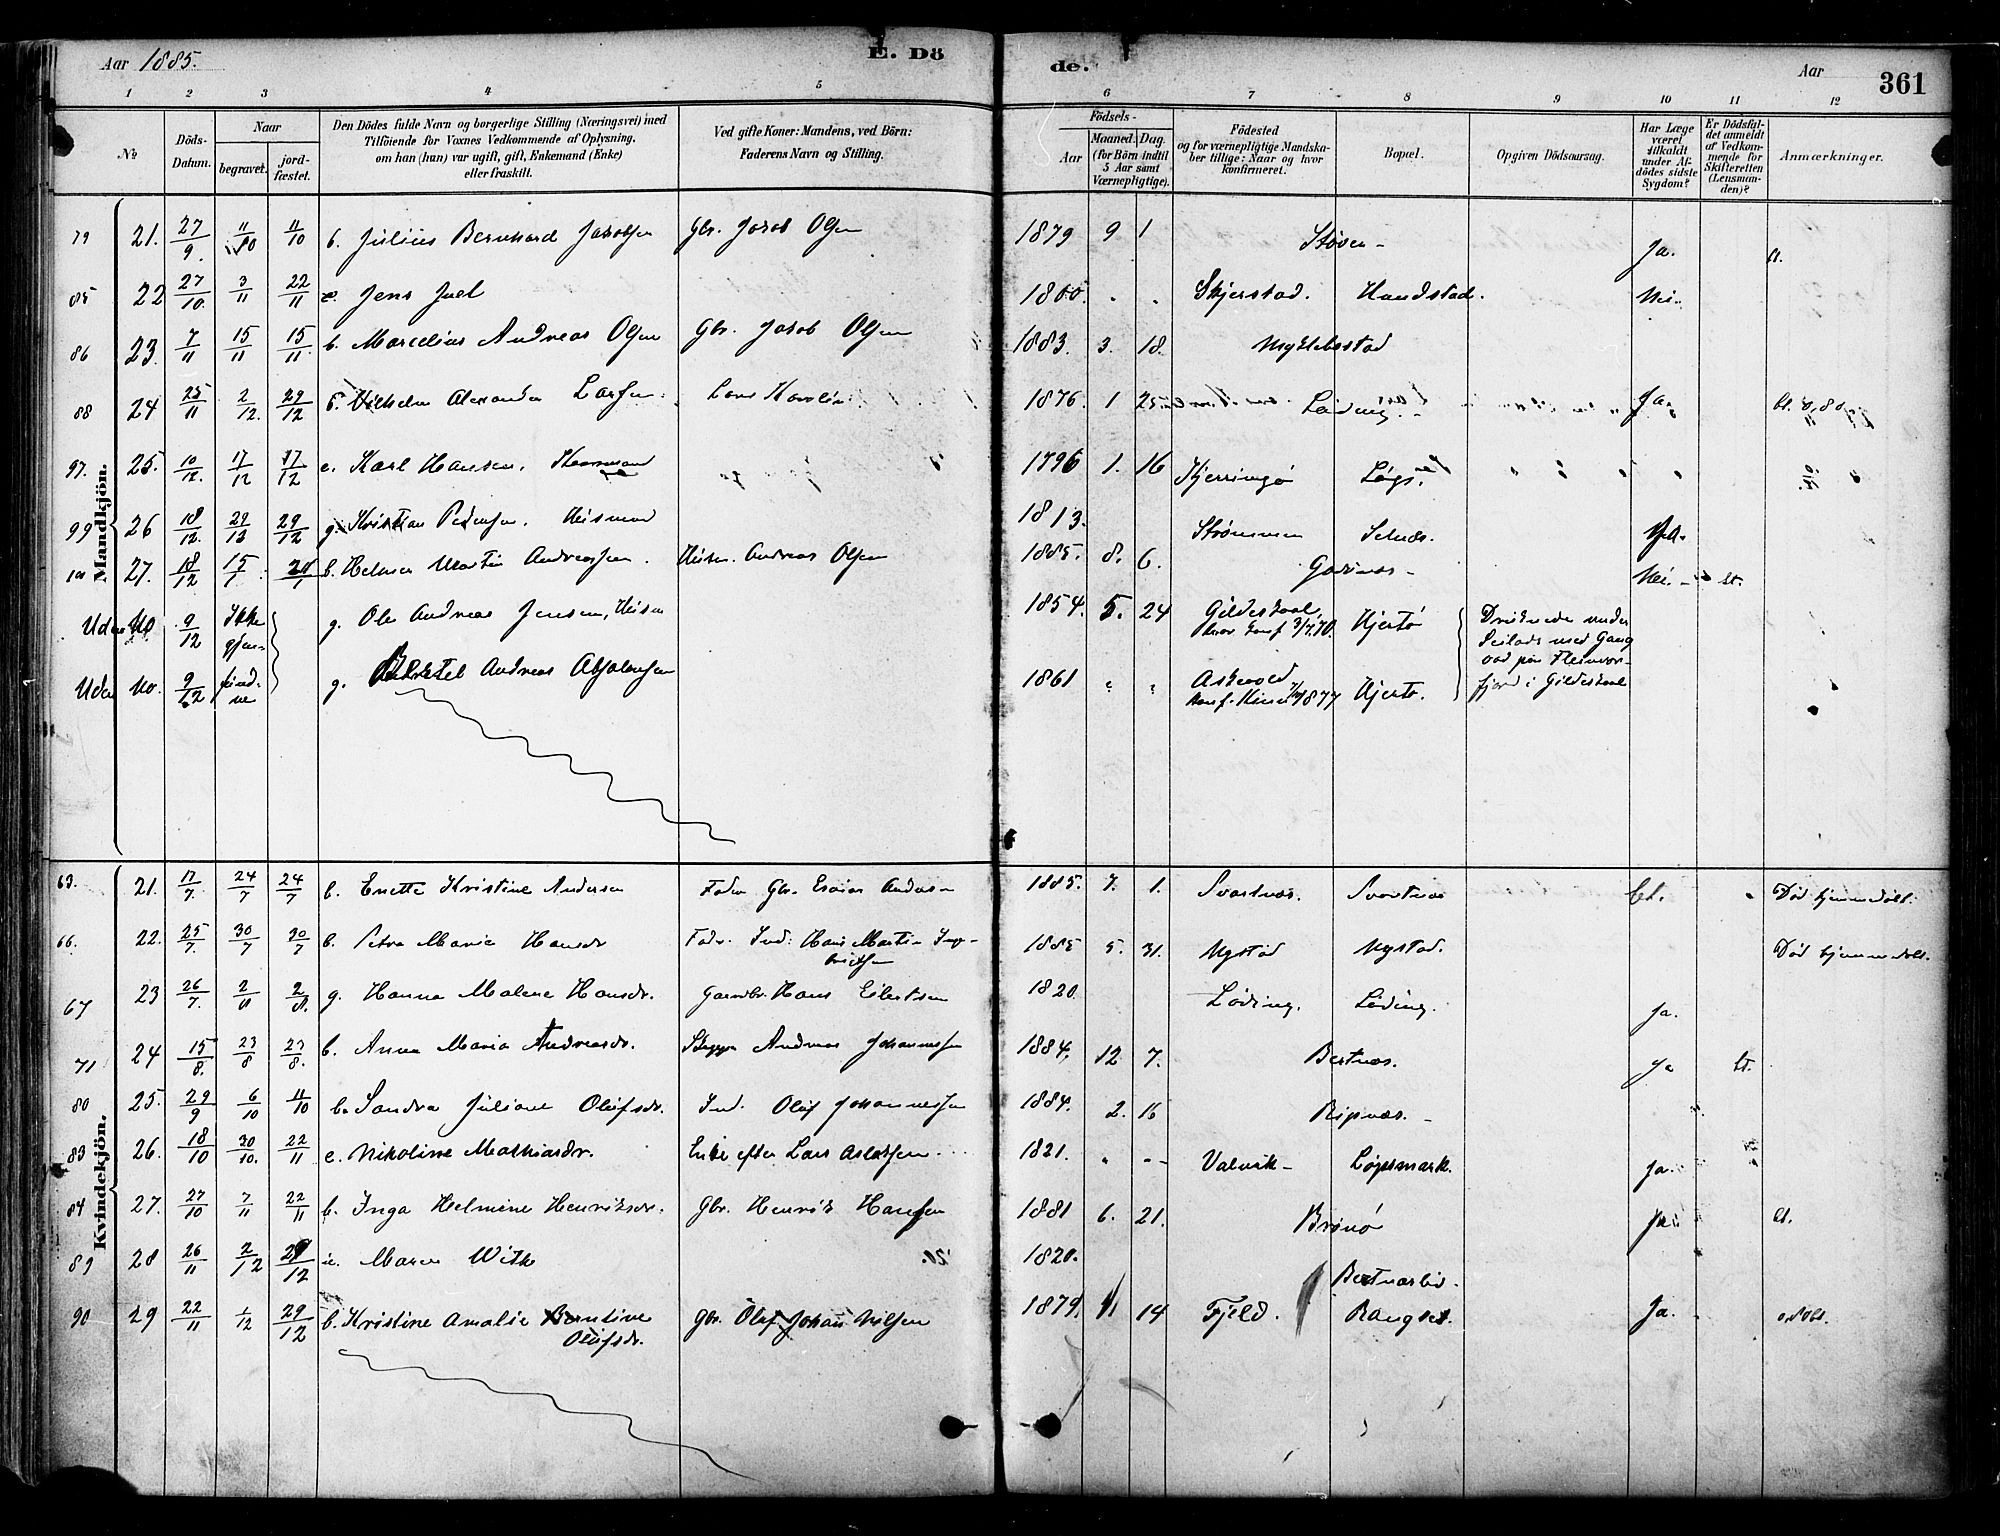 Aar 1885. E. Dö
de. Aar 361
1 2 3 4 5 6 7 8 9 10 11 12
No Döds-Datum. Naar begravet. jordfæstet.
Den Dödes fulde Navn og borgerlige Stilling (Næringsvei) med
Tilföiende for Voxnes Vedkommende af Oplysning,
om han (hun) var ugift, gift, Enkemand (Enke)
eller fraskilt.
Ved gifte Koner: Mandens, ved Börn:
Faderens Navn og Stilling.
Födsels-
Aar Maaned. Dag.
(for Börn indtil
5 Aar samt
Værnepligtige).
Födested
og for værnepligtige Mandska-
ber tillige: Naar og hvor
konfirmeret.
Bopæl.
Opgiven Dödsaarsag.
Har Læge
været
tilkaldt
under Af-
dödes sidste
Sygdom?
Er Dödsfal-
det anmeldt
af Vedkom-
mende for
Skifteretten
(Lensman-
den)?
Anmærkninger.
Mandkjön.
79 21. 27/9. 11/10 11/10 b. Julius Bernhard Jakobsen Gbr. Jakob Olsen 1879 9 1 Støver - Ja.
85 22 27/10. 3/11 22/11 e. Jens Juel 1800. " " Skjerstad. Hundstad. Nei.
86 23. 7/11 15/11 15/11. b. Marcelius Andreas Olsen Gbr. Jakob Olsen 1883. 3. 18. Myklebostad
88 24 25/11 2/12. 29/12 b. Vilhelm Alexander Larsen. Lars 1876. 1 25 Løding. Ja.
97. 25. 10/12. 17/12 17/12 e. Karl Hansen. 1796 1. 16 Kjerringø
99 26 18/12. 29/12 29/12 g. Kristian Pedersen. Huismand 1813. Strømmen Seines. Ja.
27. 18/12 15/1 b. Helmer Martin Andreassen. Huism. Andreas Olsen 1885. 8. 6. Nei.
Uden No 9/12 Ikke gjen- g. Ole Andreas Jensen, Huism 1854. 5. 24 Gildeskaal Hjertø Druknede under
Seilads med Gang
Uden No. 9/12 fund-ne g. Andreas Absalonsen 1861 " " Askevold Hjertø.
fjord i Gildeskaal
Kvindekjön.
63. 21. 17/7. 24/7 24/7 b. Enette Kristine Andersen Fader Gbr. Esaias Anders- 1885. 7. 1. Svartnæs. Svartnæs Død hjemmedøbt.
66. 22. 25/7. 30/7 30/7 b. Petra Marie Hansdr Fadr. Ind: Hans Martin Ing-
brictsen 1885 5. 31. Nystad Nystad. Død hjemmedøbt.
67 23 26/7. 2/8 2/8. g. Hanna Malene Hansdr. Gaardbr. Hans Eilertsen 1820. Løding. Løding. Ja.
71 24 15/8. 23/8 23/8. b. Anna Maria Andreasdr. Skipper Andreas Johannessen 1884. 12. 7. Bertnæs. Ja
80 25. 29/9 6/10 11/10 b. Sandra Juliane Olufsdr. Ind. Oluf Johannessen 1884. 2. 16 Ripnæs. -
83 26. 18/10 30/10. 22/11 e. Nikoline Mathiasdr. Enke efter Lars Aslaksen. 1821. " - - Valvik - Løpsmark. Ja.
84 27. 27/10 7/11 22/11 b. Inga Helmine Henriksdr. Gbr. Henrik Hansen 1881 6. 21. Brønø Ja.
89 28 26/11 2/12 29/12 e. Maren With 1820. Bertnæslid.
90 29 22/11 1/12 29/12 b. Kristine Amalie Berntine
Olufsdr. Gbr. Oluf Johan Nilsen 1879. 11 14 Fjeld. Rangset. Ja.